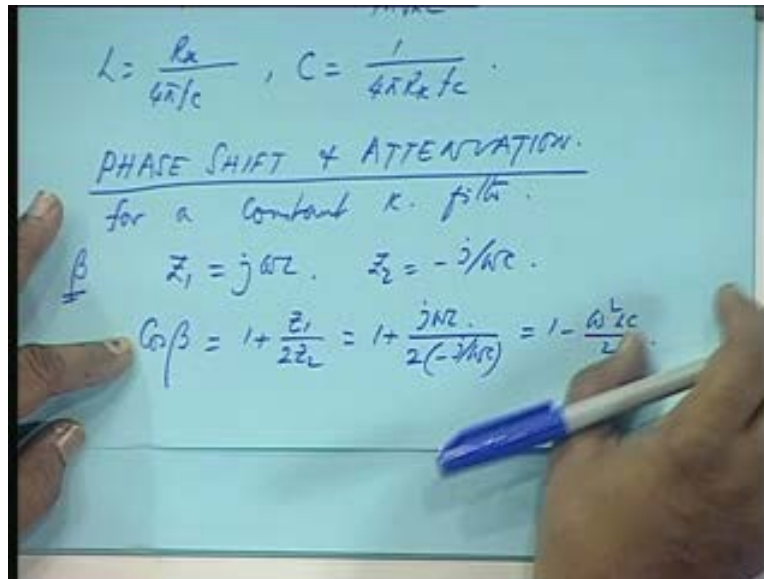 L = Rk/4πfc , C = 1/4πRkfc .
PHASE SHIFT & ATTENUATION.
for a constant K. filter.
β Z1 = jωL. Z2 = -j/ωc.
Cosβ = 1 + Z1/2Z2 = 1 + jωL./2(-j/ωc) = 1 - ω²LC/2.